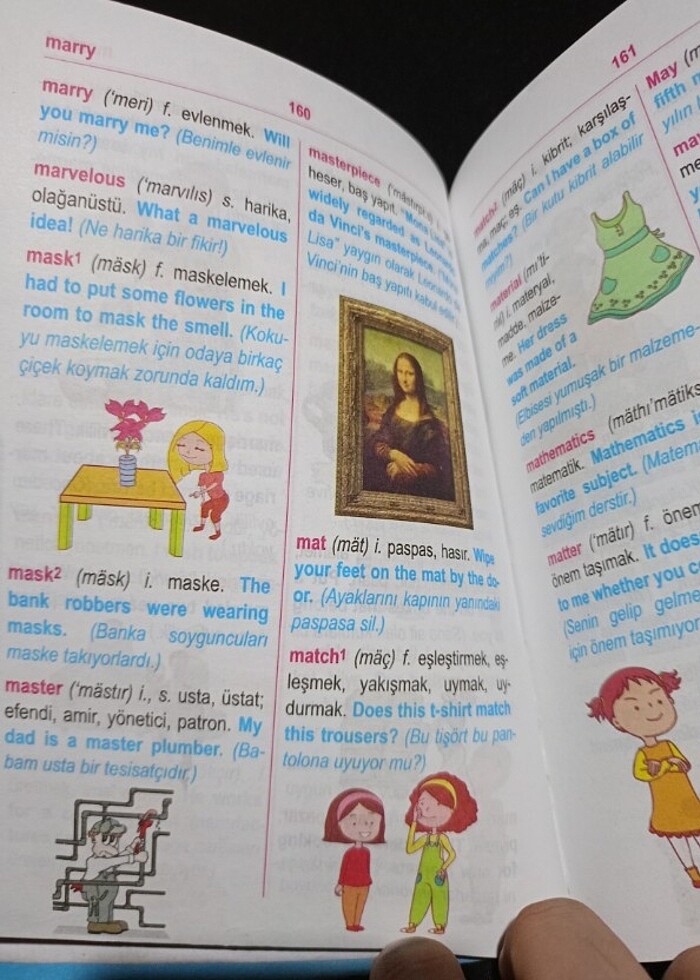 marry
160
marry ('meri) f. evlenmek. Will
you marry me? (Benimle evlenir
misin?)
marvelous ('marvılıs) s. harika,
olağanüstü. What a marvelous
idea! (Ne harika bir fikir!)
mask¹ (mäsk) f. maskelemek. I
had to put some flowers in the
room to mask the smell. (Koku-
yu maskelemek için odaya birkaç
çiçek koymak zorunda kaldım.)
mask² (mäsk) i. maske. The
bank robbers were wearing
masks. (Banka soyguncuları
maske takıyorlardı.)
master ('mästır) i., s. usta, üstat;
efendi, amir, yönetici, patron. My
dad is a master plumber. (Ba-
bam usta bir tesisatçıdır.)
masterpiece
heser, baş yapıt. "Mona
widely regarded as
da Vinci's masterpiece.
Lisa" yaygın olarak
Vinci'nin baş yapıtı kabul
mat (mät) i. paspas, hasır. Wipe
your feet on the mat by the do-
or. (Ayaklarını kapının yanındaki
paspasa sil.)
match¹ (mäç) f. eşleştirmek, eş-
leşmek, yakışmak, uymak, uy-
durmak. Does this t-shirt match
this trousers? (Bu tişört bu pan-
tolona uyuyor mu?)
161
match² (mäç) i. kibrit; karşılaş-
ma, maç; eş. Can I have a box of
matches? (Bir kutu kibrit alabilir
miyim?)
material (mı'ti-
i. materyal,
madde, malze-
me. Her dress
was made of a
soft material.
(Elbisesi yumuşak bir malzeme-
den yapılmıştı.)
mathematics (mäthı'mätiks
matematik. Mathematics
favorite subject.
sevdiğim derstir.)
matter ('mätır) f.
önem taşımak. It does
to me whether you
(Senin gelip
için önem
May
fifth
yılın